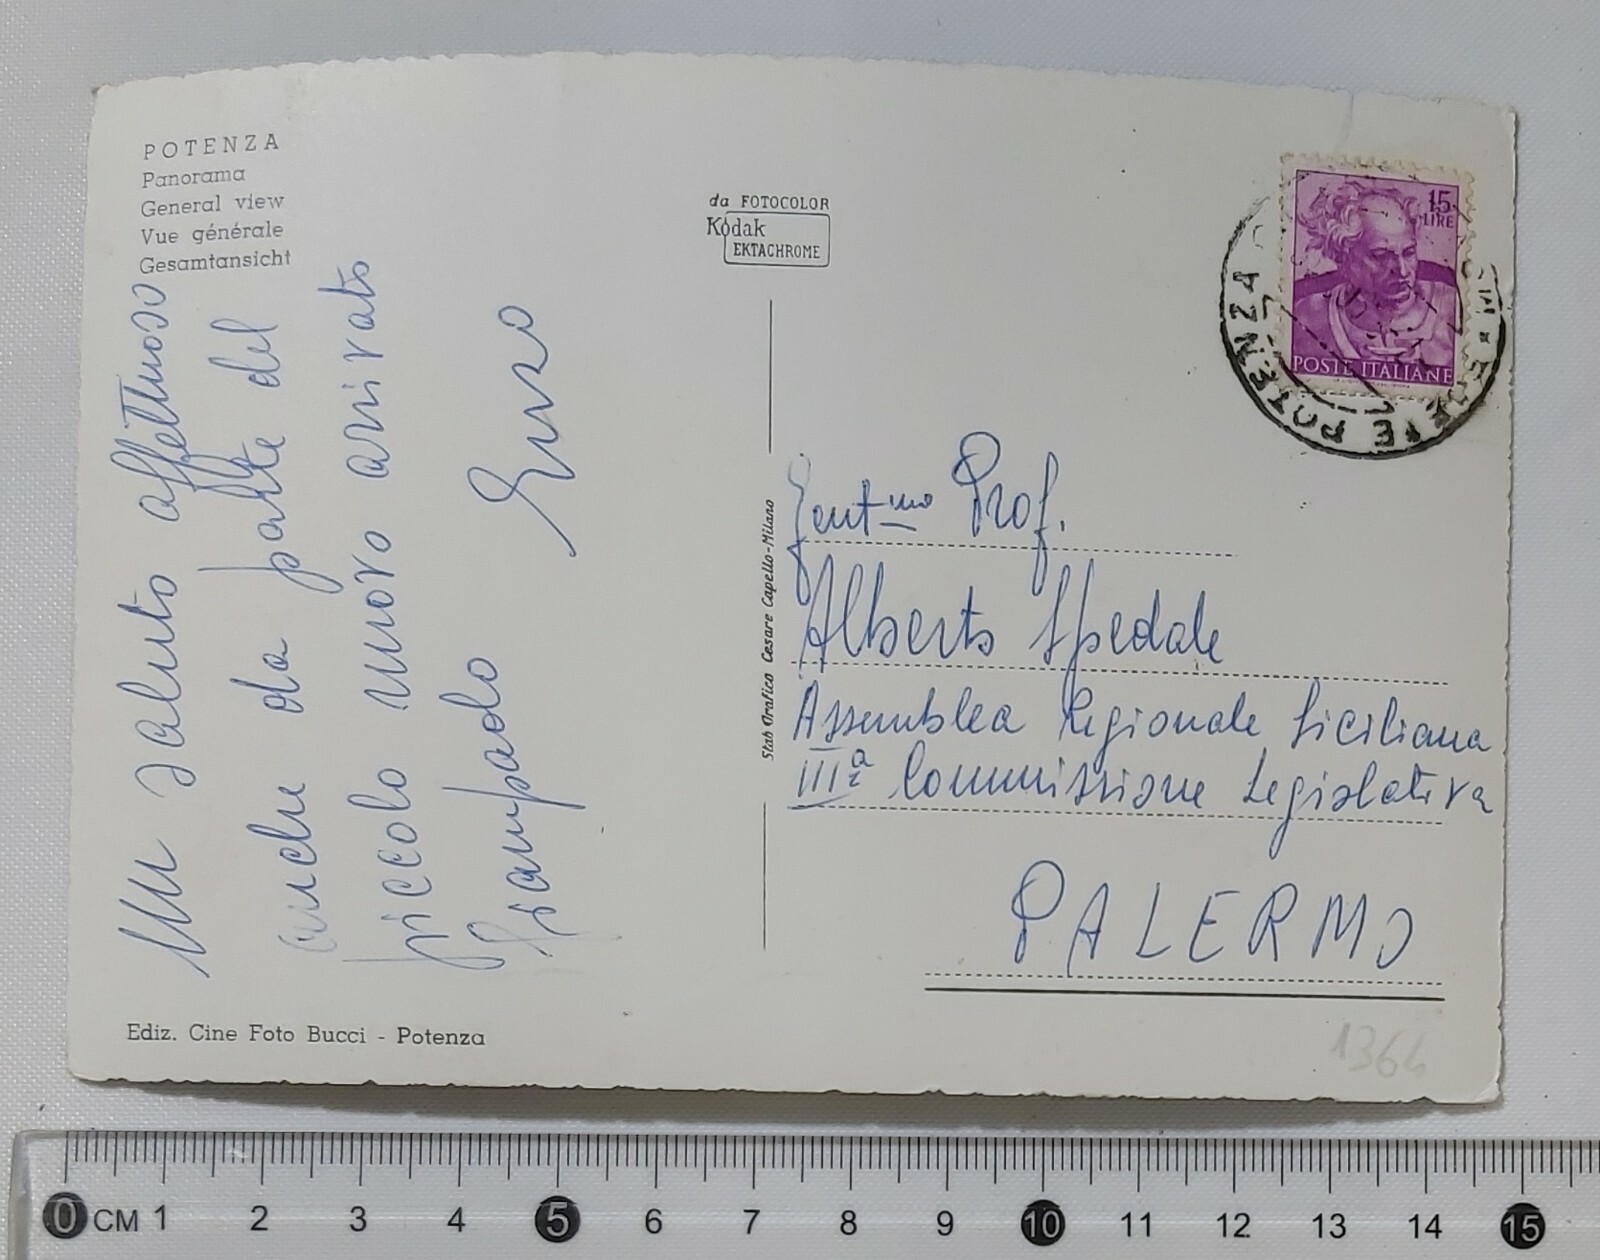 POTENZA
Panorama
General view
Vue générale
Gesamtansicht
Un saluto affettuoso
anche da parte del
piccolo nuovo arrivato
Giampaolo
Enzo
Ediz. Cine Foto Bucci - Potenza
da FOTOCOLOR
Kodak
EKTACHROME
Stab Grafico Cesare Capello-Milano
15
LIRE
POSTE ITALIANE
POTENZA
Gent.mo Prof.
Alberto Spedale
Assemblea Regionale Siciliana
IIIª Commissione Legislativa
PALERMO
1364
0 CM 1 2 3 4 5 6 7 8 9 10 11 12 13 14 15